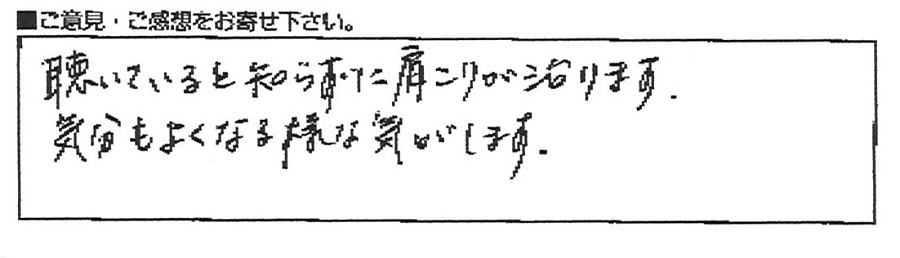 ■ご意見・ご感想をお寄せ下さい。
聴いていると知らずに肩こりが治ります.
気分もよくなる様な気がします.